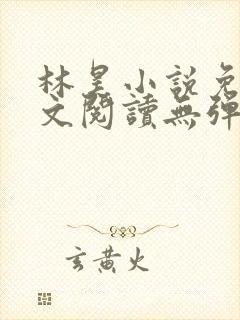 林昊小説免
文閱讀無彈
玄黃火